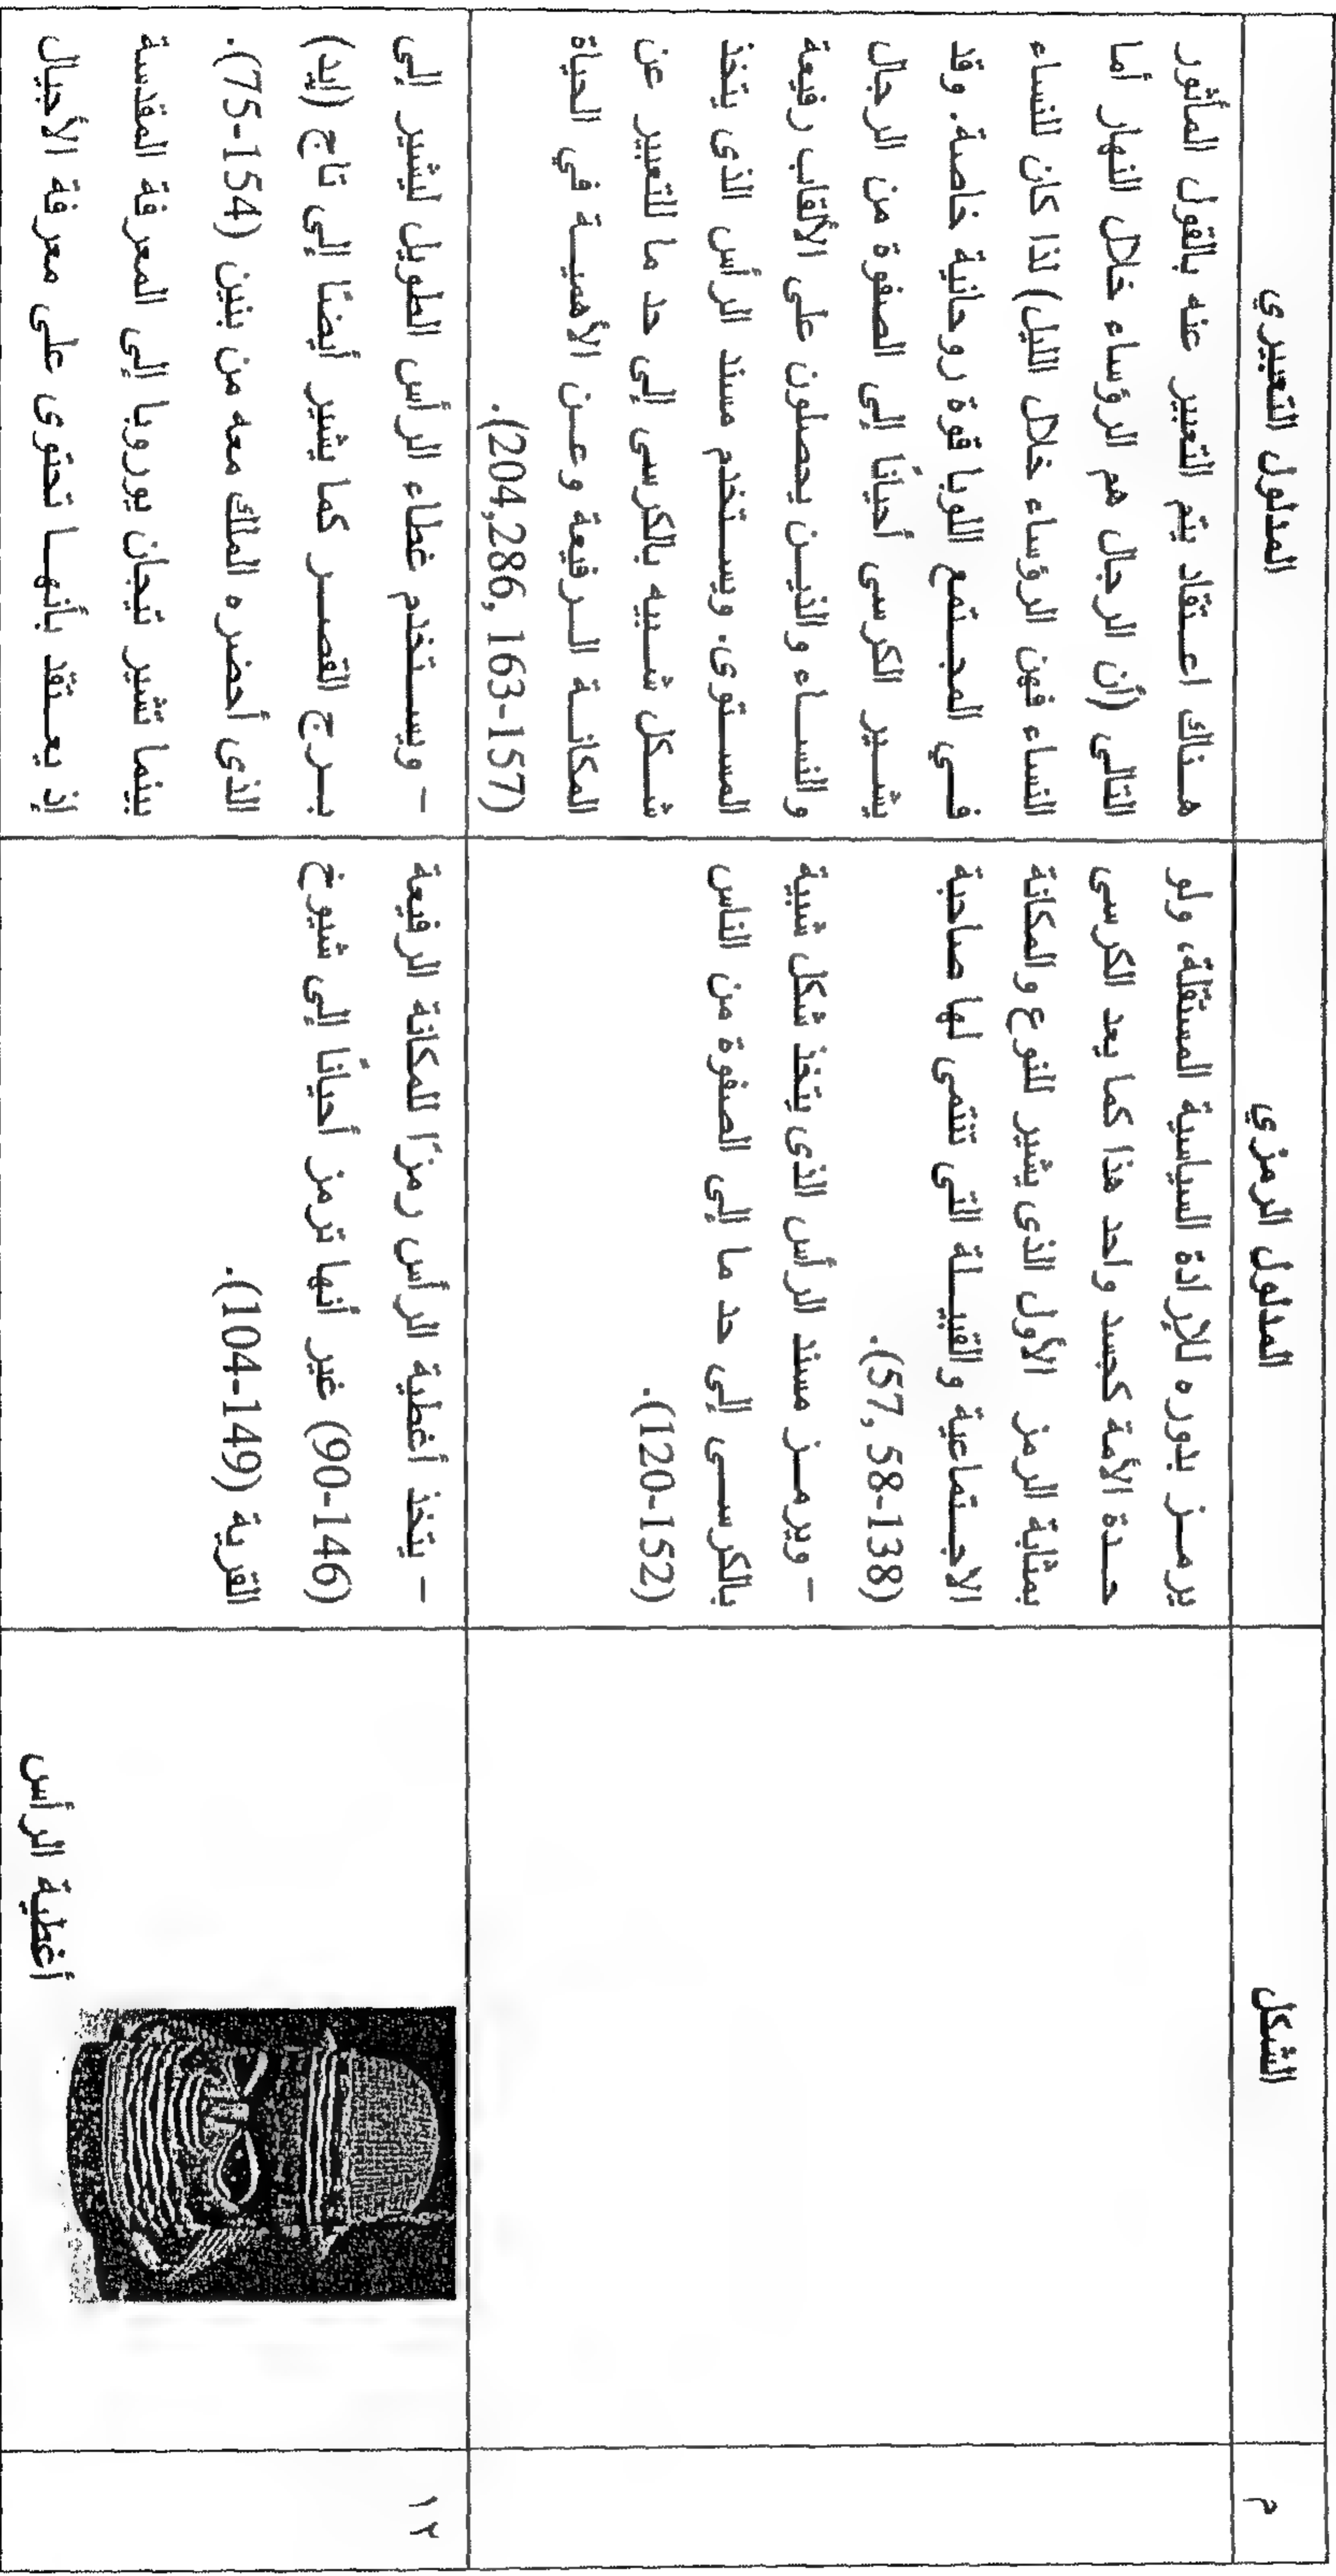 م
الشكل
المدلول الرمزي
المدلول التعبيري
يرمـــز بدوره للإرادة السياسية المستقلة، ولو
حـــدة الأمة كجسد واحد هذا كما يعد الكرسى
بمثابة الرمز الأول الذى يشير للنوع والمكانة
الاجـــتماعية والقبيـــلة التى تنتمى لها صاحبة
(57, 58-138).
- ويرمـــز مسند الرأس الذى يتخذ شكل شبية
بالكرســـى إلى حد ما إلى الصفوة من الناس
(120-152).
هـــناك اعـــتقاد يتم التعبير عنه بالقول المأثور
التالى (أن الرجال هم الرؤساء خلال النهار أما
النساء فهن الرؤساء خلال الليل) لذا كان للنساء
فـــي المجـــتمع اللوبا قوة روحانية خاصة. وقد
يشـــير الكرسى أحيانًا إلى الصفوة من الرجال
والنســـاء والذيـــن يحصلون على الألقاب رفيعة
المســـتوى. ويســـتخدم مسند الرأس الذى يتخذ
شـــكل شـــبيه بالكرسى إلى حد ما للتعبير عن
المكانـــة الـــرفيعة وعـــن الأهميـــة في الحياة
(204,286, 163-157).
١٢
أغطية الرأس
- يتخذ أغطية الرأس رمزًا للمكانة الرفيعة
(90-146) غير أنها ترمز أحيانًا إلى شيوخ
القرية (104-149).
- ويســـتخدم غطاء الرأس الطويل ليشير إلى
بـــرج القصـــر كما يشير أيضًا إلى تاج (ايد)
الذى أحضره الملك معه من بنين (75-154).
بينما تشير تيجان يوروبا إلى المعرفة المقدسة
إذ يعـــتقد بأنهـــا تحتوى على معرفة الأجيال